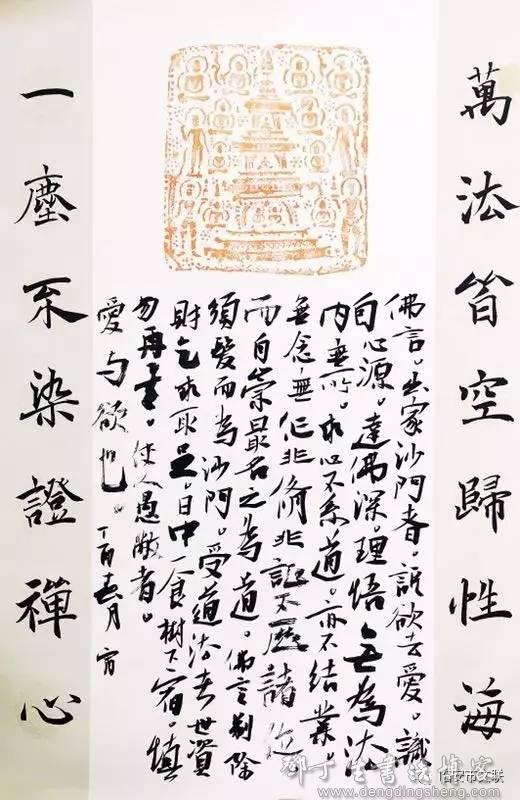 萬法皆空歸性海
佛言。出家沙門者。斷欲去愛。識
自心源。達佛深。理悟無為法
内無所。求心不系道。亦不結業。
無念無作非脩非證不歷諸位
而自崇最名之為道。佛言剃除
須髮而為沙門。受道法去世資
財乞求取足。日中一食樹下一宿。慎
勿再生。使人愚敝者。
愛與欲也。丁酉春月
一塵不染證禪心
邓丁生書法博客
www.dengdingsheng.com
吉安市文联